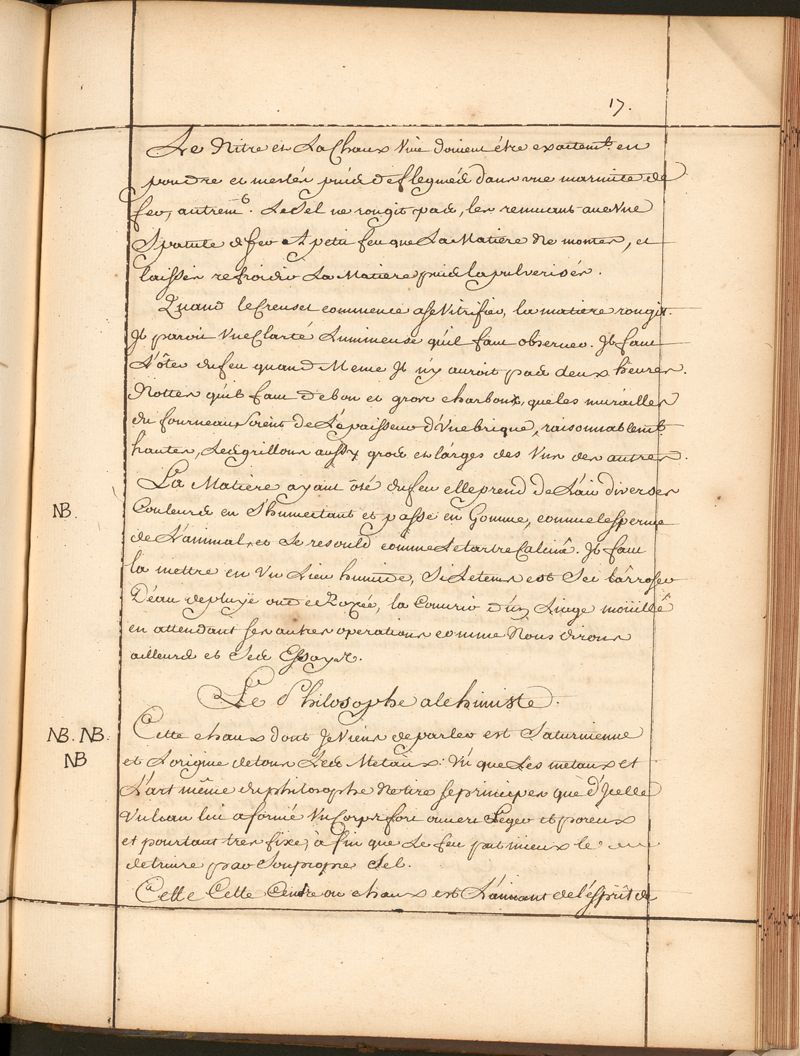 17.
Le Nitre et La Chaux Vive doivent être exactemt. en
poudre et meslés puis deflegmés dans vne marmite de
fer, autremt. Le Sel ne rougit pas, les remuant avec Vne
Spatule de fer A petit feu que La Matiere Ne monte, et
laisser refroidir La Matiere puis la pulveriser.
Quand le Creuset commence a se Vitrifier, la matiere rougit.
Il paroit Vne Clarté Lumineuse qu'il faut observer. Il faut
L'ôter du feu quand Meme Il n'y auroit pas deux heures.
Notter qu'il faut de bon et gros charbon, que les murailles
du fourneau Soient de L'épaisseur d'Vne brique, raisonnablemt.
hautes, Les grillons aussy gros et larges des Vns des autres.
NB.
La Matiere ayant été ôté du feu elle prend de L'air diverses
Couleurs en S'humectant et passe en Gomme, comme le sperme
de L'animal, et Se resould comme Le tartre Calciné. Il faut
la mettre en Vn Lieu humide, Si Le tems est Sec l'arroser
D'eau de pluye ou de Rozée, la Couvrir d'un Linge moüillé
en attendant ses autres operations comme Nous dirons
ailleurs et Ses Essays.
Le Philosophe alchimiste.
NB. NB.
NB
Cette chaux dont Je Viens de parler est Saturnienne
et L'origine de tous Les Metaux. Vû que Les metaux et
L'art même du philosophe Ne tire ses principes que d'Icelle
Vulcan lui a formé Vn Corps fort ouvert Leger et poreux
et pourtant tres fixe, à fin que Le feu put mieux le
detruire par Son propre Sel.
Cette Cette Cendre ou chaux est L'aimant de l'esprit de